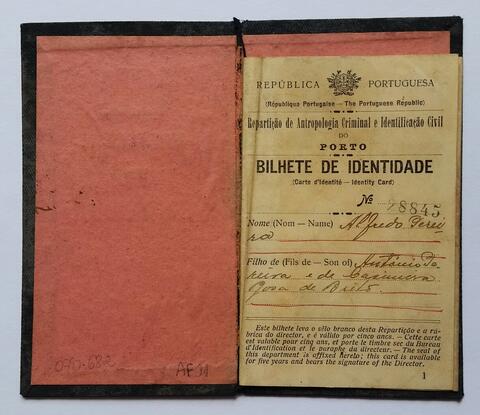 REPÚBLICA PORTUGUESA
(République Portugaise — The Portuguese Republic)
Repartição de Antropologia Criminal e Identificação Civil
DO
PORTO
BILHETE DE IDENTIDADE
(Carte d'Identité — Identity Card)
Nº 8845
Nome (Nom — Name) Alfredo Perei-
ra
Filho de (Fils de — Son of) António Pe
reira e de Casimira
Rosa de Brito.
Este bilhete leva o sêlo branco desta Repartição e a rú-
brica do director, e é válido por cinco anos. — Cette carte
est valable pour cinq ans, et porte le timbre sec du Bureau
d'Identification et le paraphe du directeur. — The seal of
this department is affixed hereto; this card is available
for five years and bears the signature of the Director.
1
AF